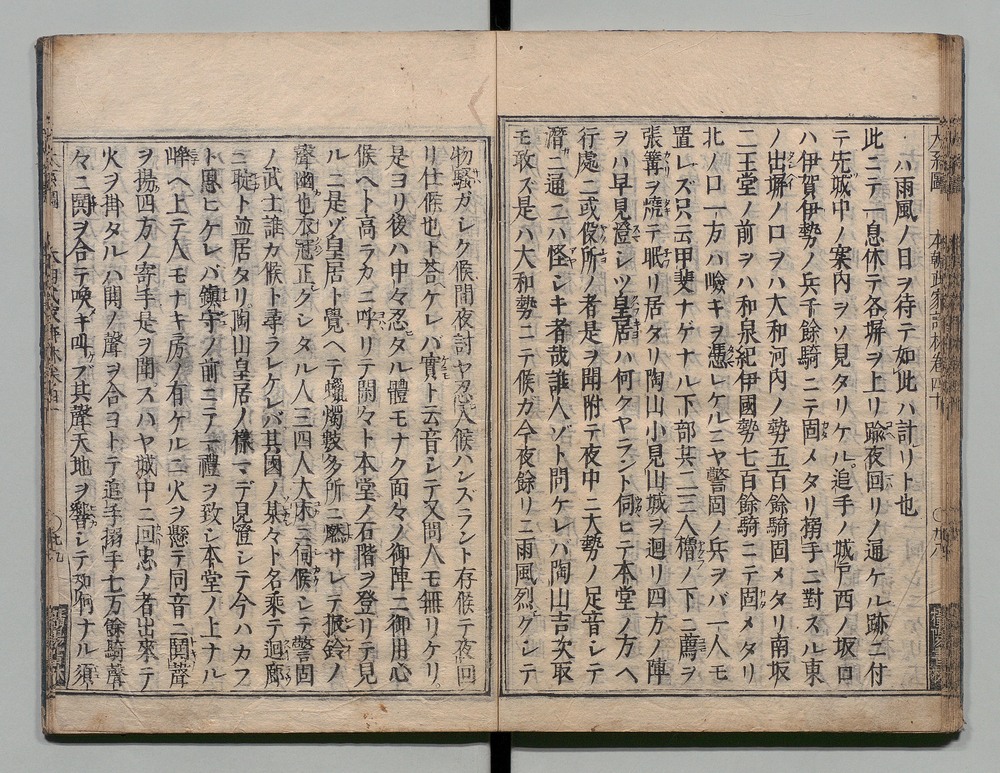 ハ雨風ノ日ヲ待テ如此ハ計リト也
此ニテ一息休テ各塀ヲ上リ踰夜回リノ通ケル跡ニ付
テ先城中ノ案内ヲソ見タリケル追手ノ城戸西ノ坂口
ハ伊賀伊勢ノ兵千餘騎ニテ固メタリ搦手ニ對スル東
ノ出塀ノ口ヲハ大和河内ノ勢五百餘騎固メタリ南坂
二王堂ノ前ヲハ和泉紀伊國勢七百餘騎ニテ固メタリ
北ノ口一方ハ嶮キヲ憑レケルニヤ警固ノ兵ヲバ一人モ
置レズ只云甲斐ナゲナル下部共二三人櫓ノ下ニ薦ヲ
張篝ヲ燒テ眠リ居タリ陶山小見山城ヲ迴リ四方ノ陣
ヲハ早見澄シツ皇居ハ何クヤラント伺ヒテ本堂ノ方ヘ
行處ニ或役所ノ者是ヲ聞附テ夜中ニ大勢ノ足音シテ
潛ニ通ニハ怪シキ者哉誰人ゾト問ケレバ陶山吉次取
モ敢ズ是ハ大和勢ニテ候ガ今夜餘リニ雨風烈グシテ
物騷ガシク候間夜討ヤ忍入候ハンズラント存候テ夜回
リ仕候也ト荅ケレバ實ト云音シテ又問人モ無リケリ
是ヨリ後ハ中々忍タル體モナク面々ノ御陣ニ御用心
候ヘト高ラカニ呼リテ閑々ト本堂ノ石階ヲ登リテ見
ルニ是ゾ皇居ト覺ヘテ蠟燭數多所ニ燃サレテ振鈴ノ
聲幽也衣冠正クシタル人三四人大床ニ伺候シテ警固
ノ武士誰カ候ト尋ラレケレバ其國ノ某々ト名乘テ迴廊
ニ聢ト並居タリ陶山皇居ノ樣マデ見澄シテ今ハカフ
ト思ヒケレバ鎭守ノ前ニテ一禮ヲ致シ本堂ノ上ナル
峰ヘ上テ人モナキ房ノ有ケルニ火ヲ懸テ同音ニ鬨聲
ヲ揚四方ノ寄手是ヲ聞スハヤ城中ニ回忠ノ者出來テ
火ヲ掛タルハ鬨ノ聲ヲ合ヨトテ追手搦手七万餘騎聲
々ニ鬨ヲ合テ喚キ叫フ其聲天地ヲ響シテ如何ナル須